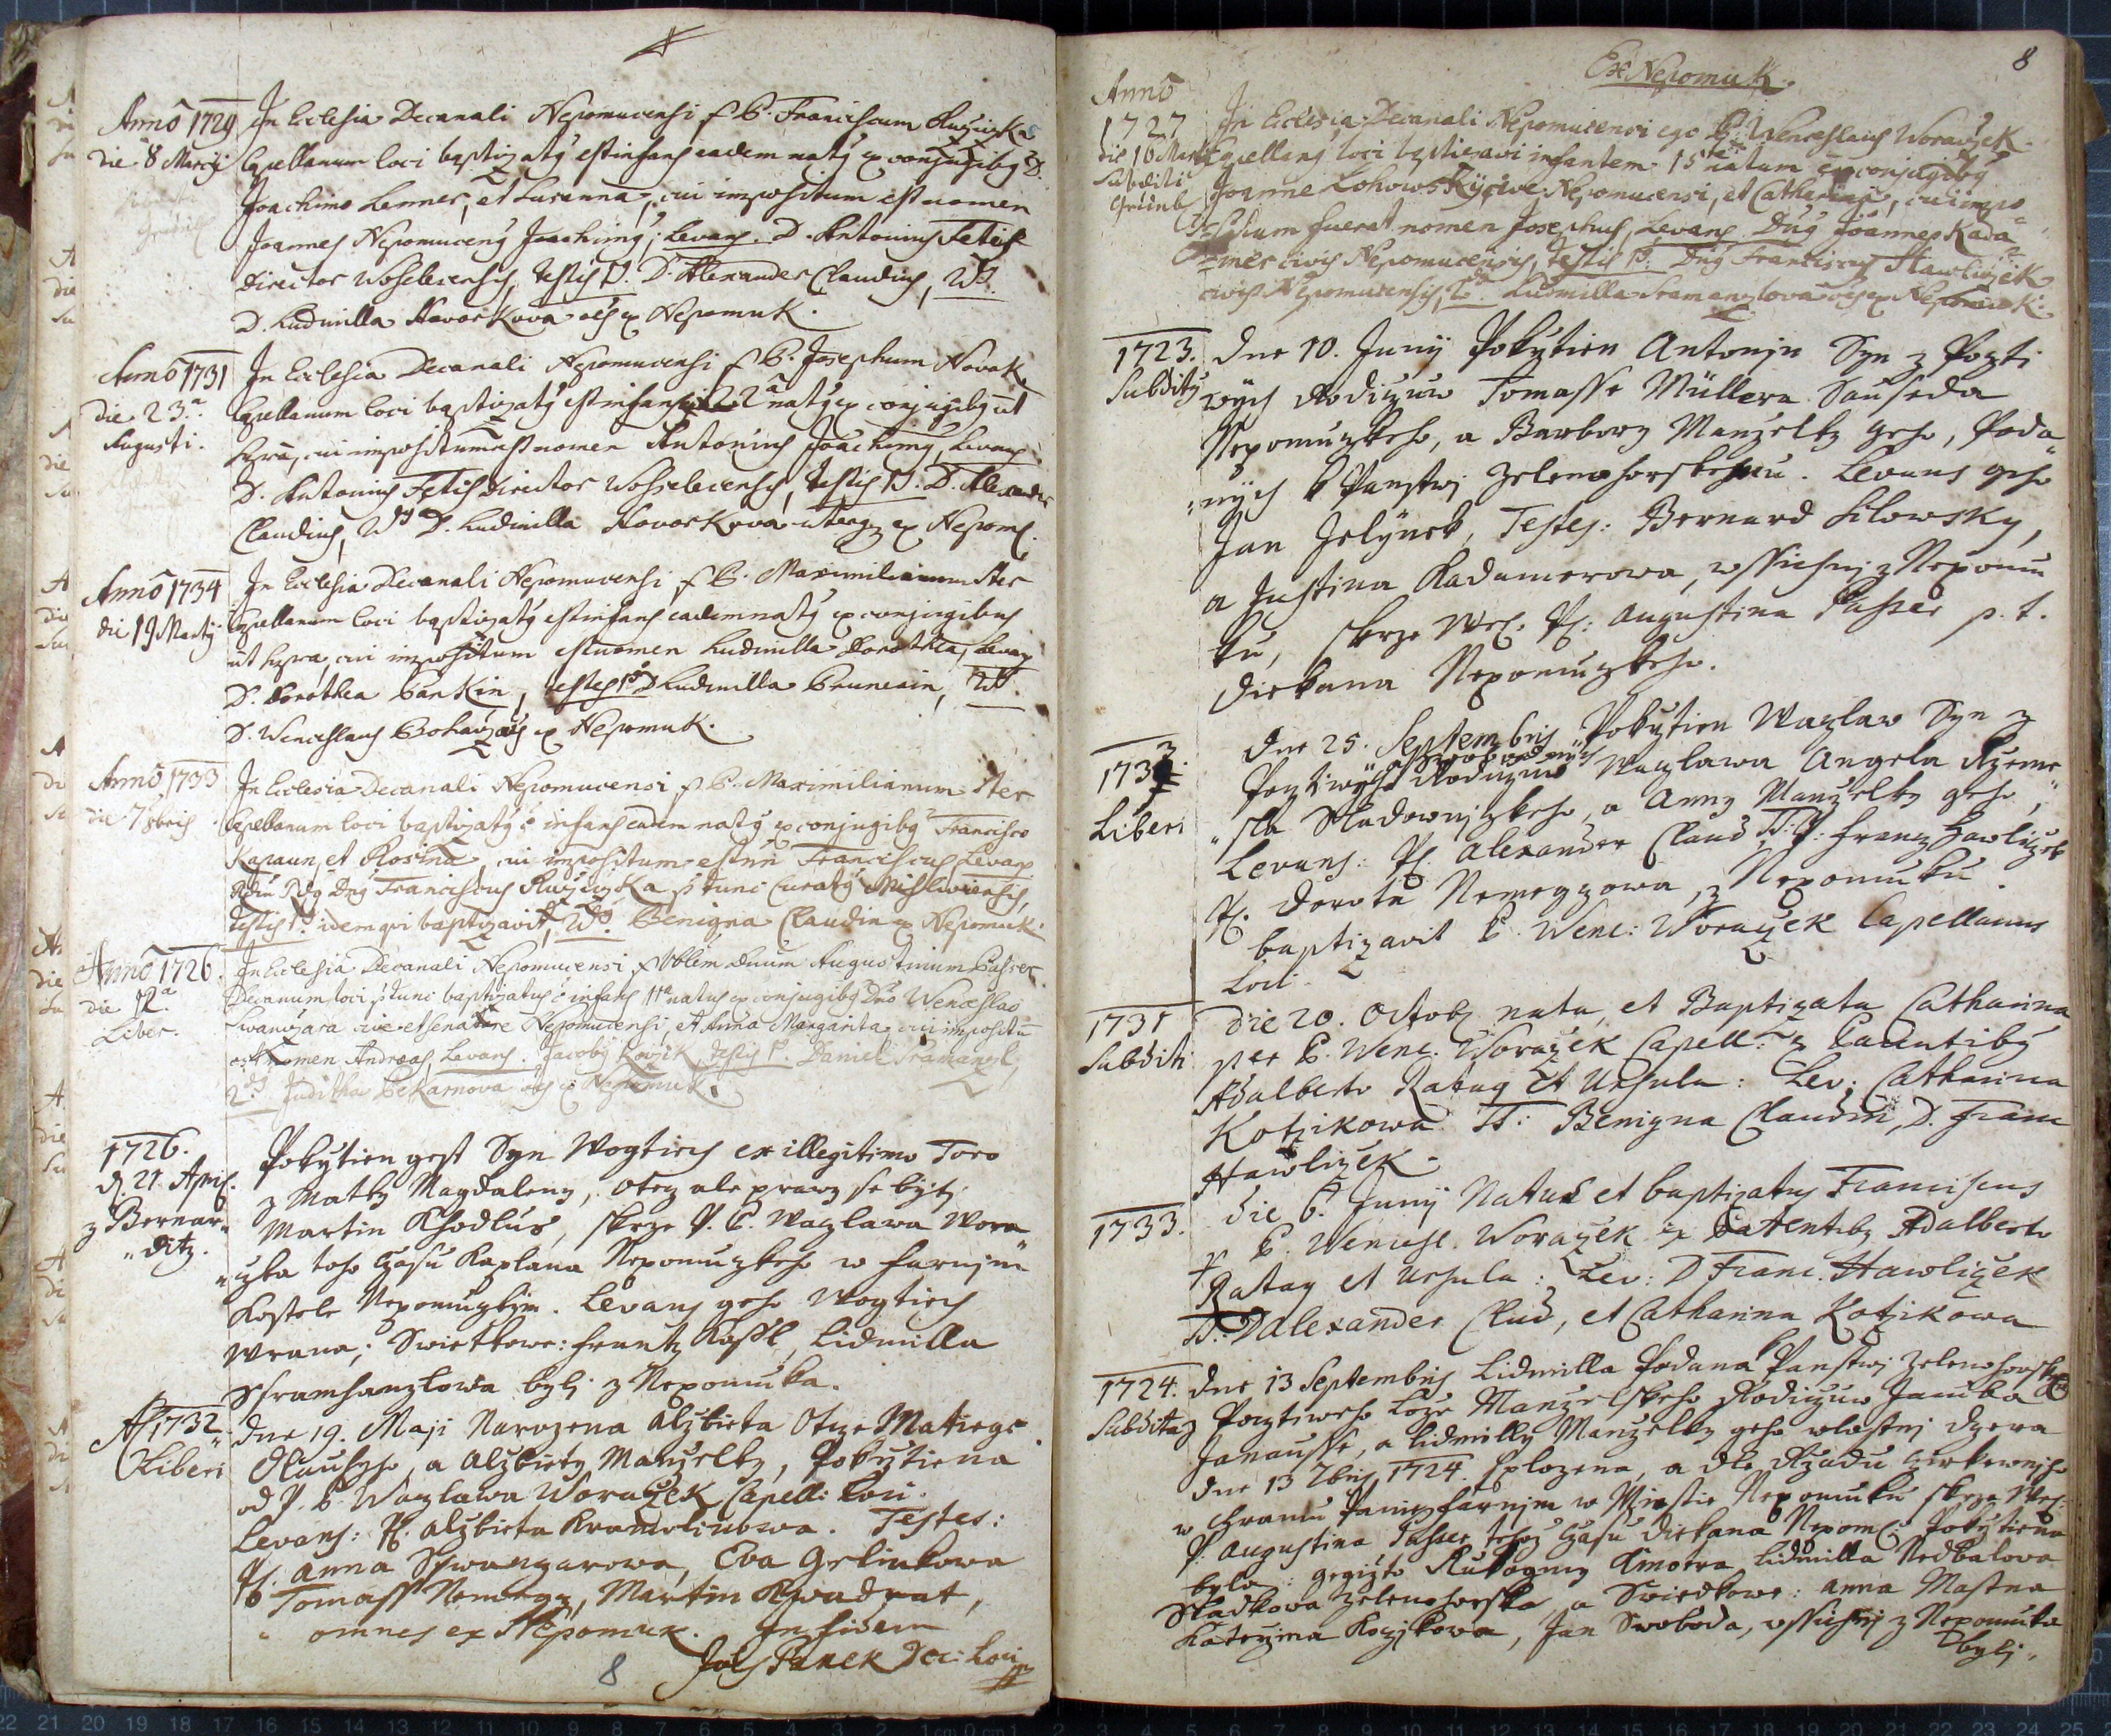 Anno 1729
die 8 Martij
In Ecclesia Decanali Nepomucensi p P. Franciscum Ružiczka
Capellanum loci baptizatq est infans eadem natq ex conjugibq D.
Joachimo Lenner, et Susanna, cui impositum est nomen
Joannes Nepomucenq Joachimq, Levans D. Antonius Fetisch
Director Wosselecensis, testis 1. D. Alexander Claudius, 2da
D. Ludmilla Havorkova oēs ex Nepomuk.
Anno 1731
die 23a
Augusti.
In Ecclesia Decanali Nepomucensi p P. Josephum Novak
Capellanum loci baptizatq est infans 22a natq ex conjugibq ut
supra, cui impositum est nomen Antonius Joachimq, Levans
D. Antonius Fetisch Director Wosselecensis, testis 1. D. Alexander
Claudius, 2da D. Ludmilla Hovorkova uterq ex Nepom.
Anno 1734
die 19 Martij
In Ecclesia Decanali Nepomucensi p P. Maximilianum Ster
Capellanum loci baptizatq est infans eadem natq ex conjugibus
ut supra, cui impositum est nomen Ludmilla Dorothea, Levans
D. Dorothea Pankin, testes 1 D Ludmilla Prunerin, 2da
D. Wenceslaus Bohaz oēs ex Nepomuk.
Anno 1733
die 7 8bris
In Ecclesia Decanali Nepomucensi p P. Maximilianum Ster
Capellanum loci baptizatq ē infans eadem natq ex conjugibq Francisco
Kapaun, et Rosina, cui impositum est nn Franciscus Levans
Adm Rdq Dnq Franciscus Ružiczka p tunc Curatq Mislivicensis,
testis 1. idem qui baptizavit, 2da Benigna Claudin ex Nepomuk.
Anno 1726
die 12a
Liber.
In Ecclesia Decanali Nepomucensi p Nblem Dnum Augustinum Passer
Decanum loci p tunc baptizatus ē infans 11a natus ex conjugibq Dno Wenceslao
Swanzara cive et senatore Nepomucensi, et Anna Margarita cui impositu
est nomen Andreas, Levans Jacobq Kozik, testis 1. Daniel Sramanzl
2da Juditha Pekarnova oēs ex Nepomuk.
1726.
d. 21 Apr.
z Bernar
ditz.
Pokrztien gest Syn Wogtiech ex illegitimo Toro
z Matky Magdaleny, otez ale prawy se byti
Martin Chodlus, skrze P. P. Waczlawa Wora
czka toho czasu Kaplana Nepomuczkeho w farnjm
Kostele Nepomuczkym. Levans geho Wogtiech
Wrana; Swiedkowe: Frantz Kossl, Lidmilla
Schramhanzlowa byli z Nepomuka.
Ao 1732
Liberi
Dne 19. Maji Narozena Alzbieta Otze Matiege
a Alzbiety Manzelky, Pokrztiena
od P. P. Waczlawa Woraczek Capell: Loci.
Levans: P. Alzbieta Kramolinowa. Testes:
P. Anna Sswanzarowa, Eva Gelinkowa
P Tomass Nemegz, Martin Kwadrat,
omnes ex Nepomuk. In fidem
Jos Panek Dec: Loci
8
8
Ex Nepomuk.
Anno
1727
die 16 Marti
Subditi
Grünb
In Eclesia Decanali Nepomucensi ego P. Wenceslaus Woraczek
Capellanq loci baptizavi infantem 15ta natum ex conjugibq
Joanne Lohowsky cive Nepomucensi, et Catherina, cui impo
situm fuerat nomen Josephus, Levans Dnq Joannes Kada
mer civis Nepomucensis, testis 1. Dnq Franciscus Hawliczek
civis Nepomucensis, 2da Ludmilla Sramanzlova oēs ex Nepomuk.
1723.
Subditq
Dne 10. Junij Pokrztien Antonjn Syn z Poczti
wych Rodiczuw Tomasse Müllera Sauseda
Nepomuczkeho, a Barbory Manzelky geho, Podda
nych k Panstwj Zelenohorskemu. Levans geho
Jan Jelynek, Testes: Bernard Lilowsky,
a Justina Kadamerowa, wssichni z Nepomu
ku, skrze Wel. P: Augustina Passer p. t.
Diekana Nepomuczkeho.
1733
Liberi
Dne 25. Septembris Pokrztien Waczlaw Syn z
Pocztiwych Rodiczuw Waczlawa Angela Rzeme
sla Sladownjczkeho, a Anny Manzelky geho,
Levans: P. Alexander Claud, TT: P: Franz Hawliczek
P. Dorota Nemegzowa, z Nepomuku.
baptizavit P. Wenc: Woraczek Capellanus
Loci.
1731
Subditi
Die 20. Octob nata, et Baptizata Catharina
per P. Wenc. Woraczek Capell: ex Parentibq
Adalberto Rataÿ et Ursula: Lev: Catharina
Kotzikowa TT: Benigna Claudin, D. Franc
Hawliczek.
1733.
Die 6. Junij Natus et baptizatus Franciscus
p P. Wencesl. Woraczek ex Parentibq Adalberto
Rataÿ et Ursula: Lev: D Franc. Hawliczek
TT: D Alexander Clud, et Catharina Kotzikowa
1724.
Subdita
Dne 13 Septembris Lidmilla Poddana Panstwj Zelenohorske
z Pocztiweho Loze Manzelskeho z Rodiczuw Jakuba
Janausse, a Lidmilly Manzelky geho wlastnj Dcera
Dne 13 7bris 1724. splozena, a dle Rzadu Cyrkewnjho
w Chramu Panie farnjm w Miestie Nepomuku skrze Wel:
P: Augustina Passer, tehoz czasu Diekana Nepom: Pokrztiena
byla: gegizto Rukogmy Kmotra Lidmilla Nedbalova
Sladkowa Zelenohorska, a Swiedkowe: Anna Mastna
Katerzina Kozjkowa, Jan Swoboda, wssichni z Nepomuku
byli.